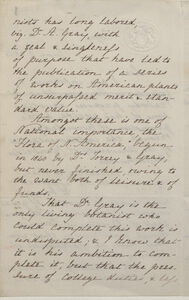 nists has long labored,
by Dr A. Gray, with
a zeal & singleness
of purpose that have led to
the publication of a series
of works on American plants
of unsurpassed merit & stan-
dard value.
Amongst these is one of
National importance the
"Flora of N. America," begun
in by Drs Torrey & Gray,
but never finished owing to
the want both of leisure & of
funds.
That Dr Gray is the
only living botanist who
could complete this work is
undisputed, & I know that
it is his ambition to com-
plete it, but that the pres-
sure of College duties &